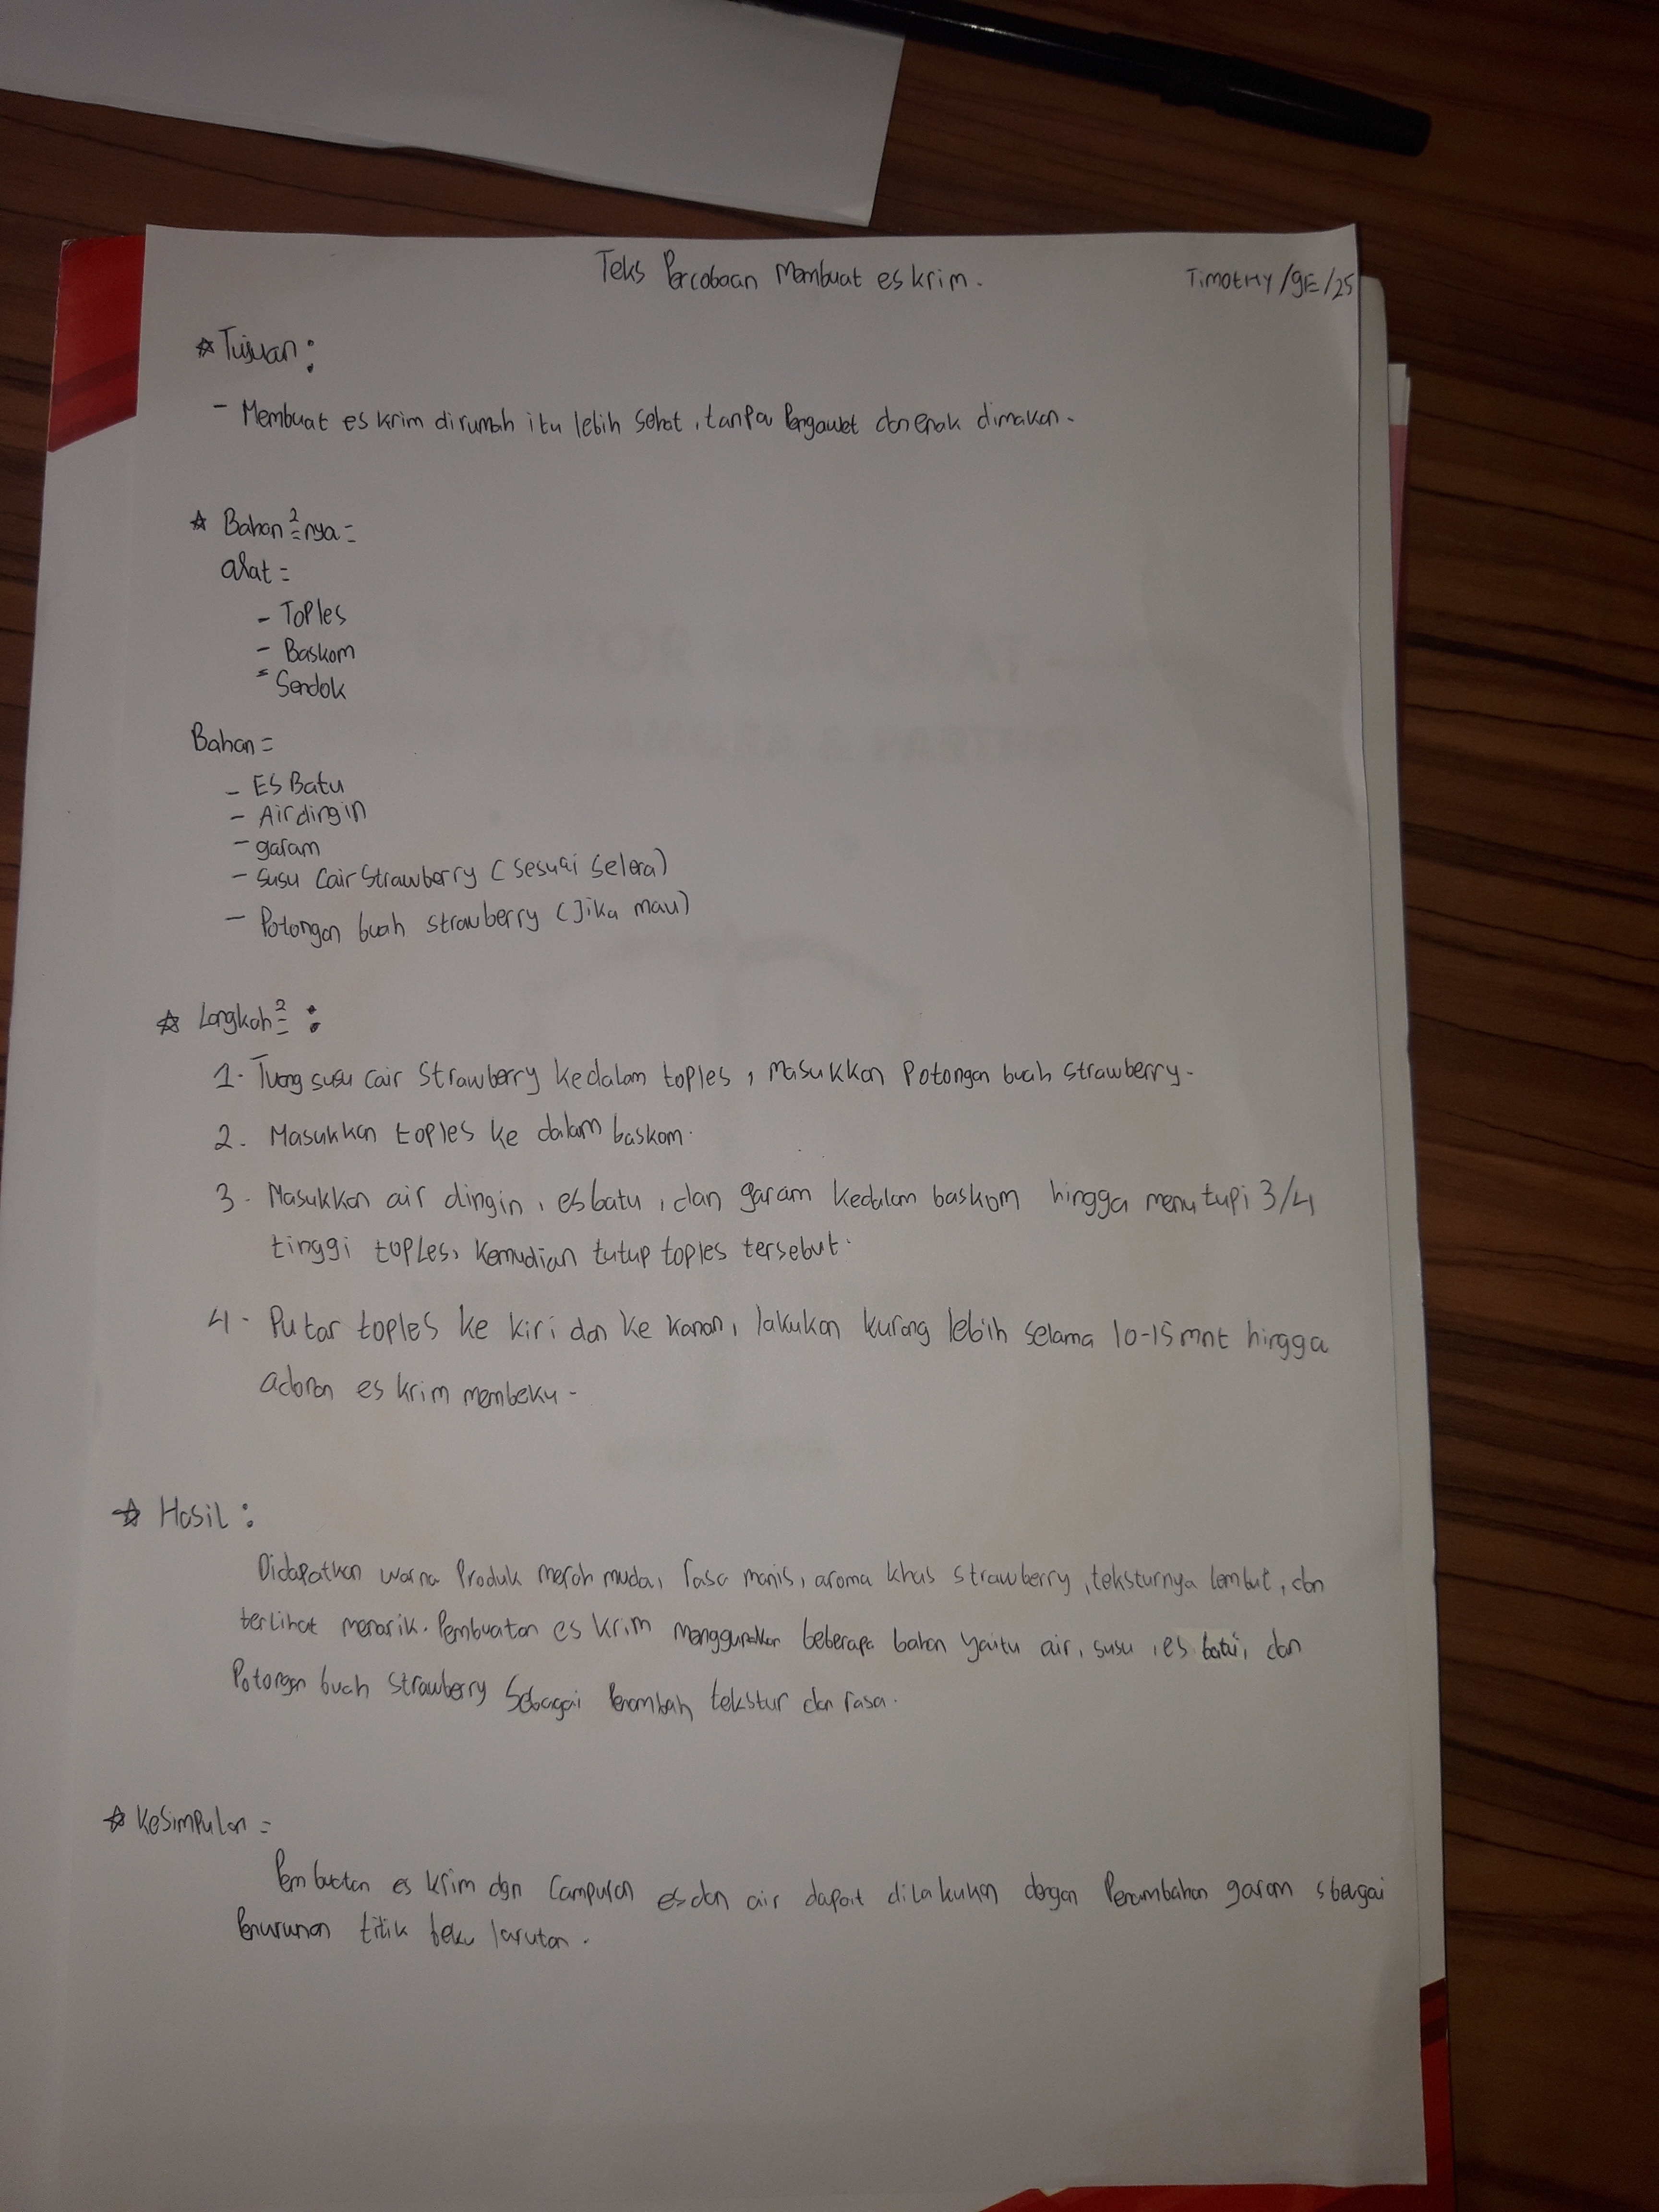 Teks Percobaan Membuat es krim.
Timothy/9E/25
☆ Tujuan :
- Membuat es krim dirumah itu lebih sehat, tanpa Pengawet dan enak dimakan.
☆ Bahan²nya =
alat =
- Toples
- Baskom
- Sendok
Bahan =
- ES Batu
- Air dingin
- garam
- susu Cair Strawberry (sesuai selera)
- Potongan buah strawberry (Jika mau)
☆ Langkah² :
1. Tuang susu cair Strawberry kedalam toples, Masukkan Potongan buah strawberry.
2. Masukkan toples ke dalam baskom.
3. Masukkan air dingin, es batu, dan garam kedalam baskom hingga menutupi 3/4
tinggi toples, kemudian tutup toples tersebut.
4. Putar toples ke kiri dan ke kanan, lakukan kurang lebih selama 10-15 mnt hingga
adonan es krim membeku.
☆ Hasil :
Didapatkan warna Produk merah muda, rasa manis, aroma khas strawberry, teksturnya lembut, dan
terlihat menarik. Pembuatan es krim menggunakan beberapa bahan yaitu air, susu, es batu, dan
Potongan buah strawberry Sebagai Penambah tekstur dan rasa.
☆ Kesimpulan =
Pembuatan es krim dgn Campuran es dan air dapat dilakukan dengan Penambahan garam sbagai
Penurunan titik beku larutan.